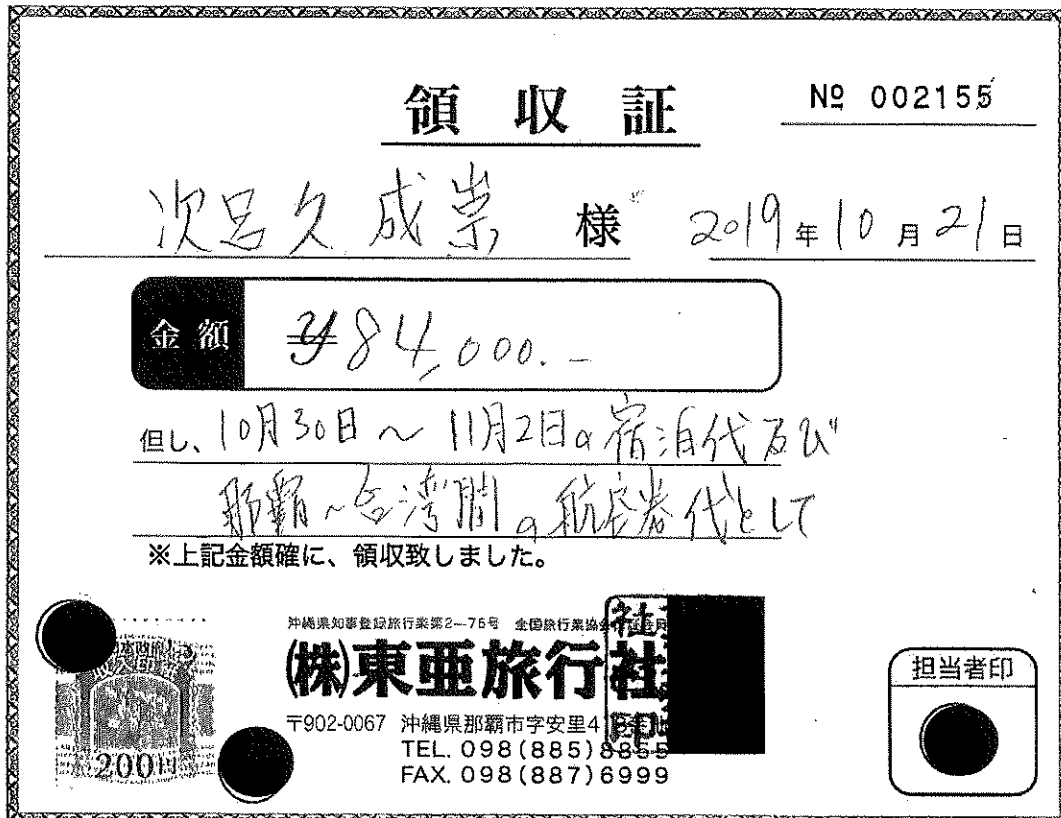 領収証
№ 002155
次呂久成崇 様
2019年10月21日
金額 ¥84,000.-
但し、10月30日～11月2日の宿泊代及び
那覇～台湾間の航空券代として
※上記金額確に、領収致しました。
沖縄県知事登録旅行業第2-76号 全国旅行業協会
(株)東亜旅行社
〒902-0067 沖縄県那覇市字安里4
TEL. 098(885)8855
FAX. 098(887)6999
200円
担当者印